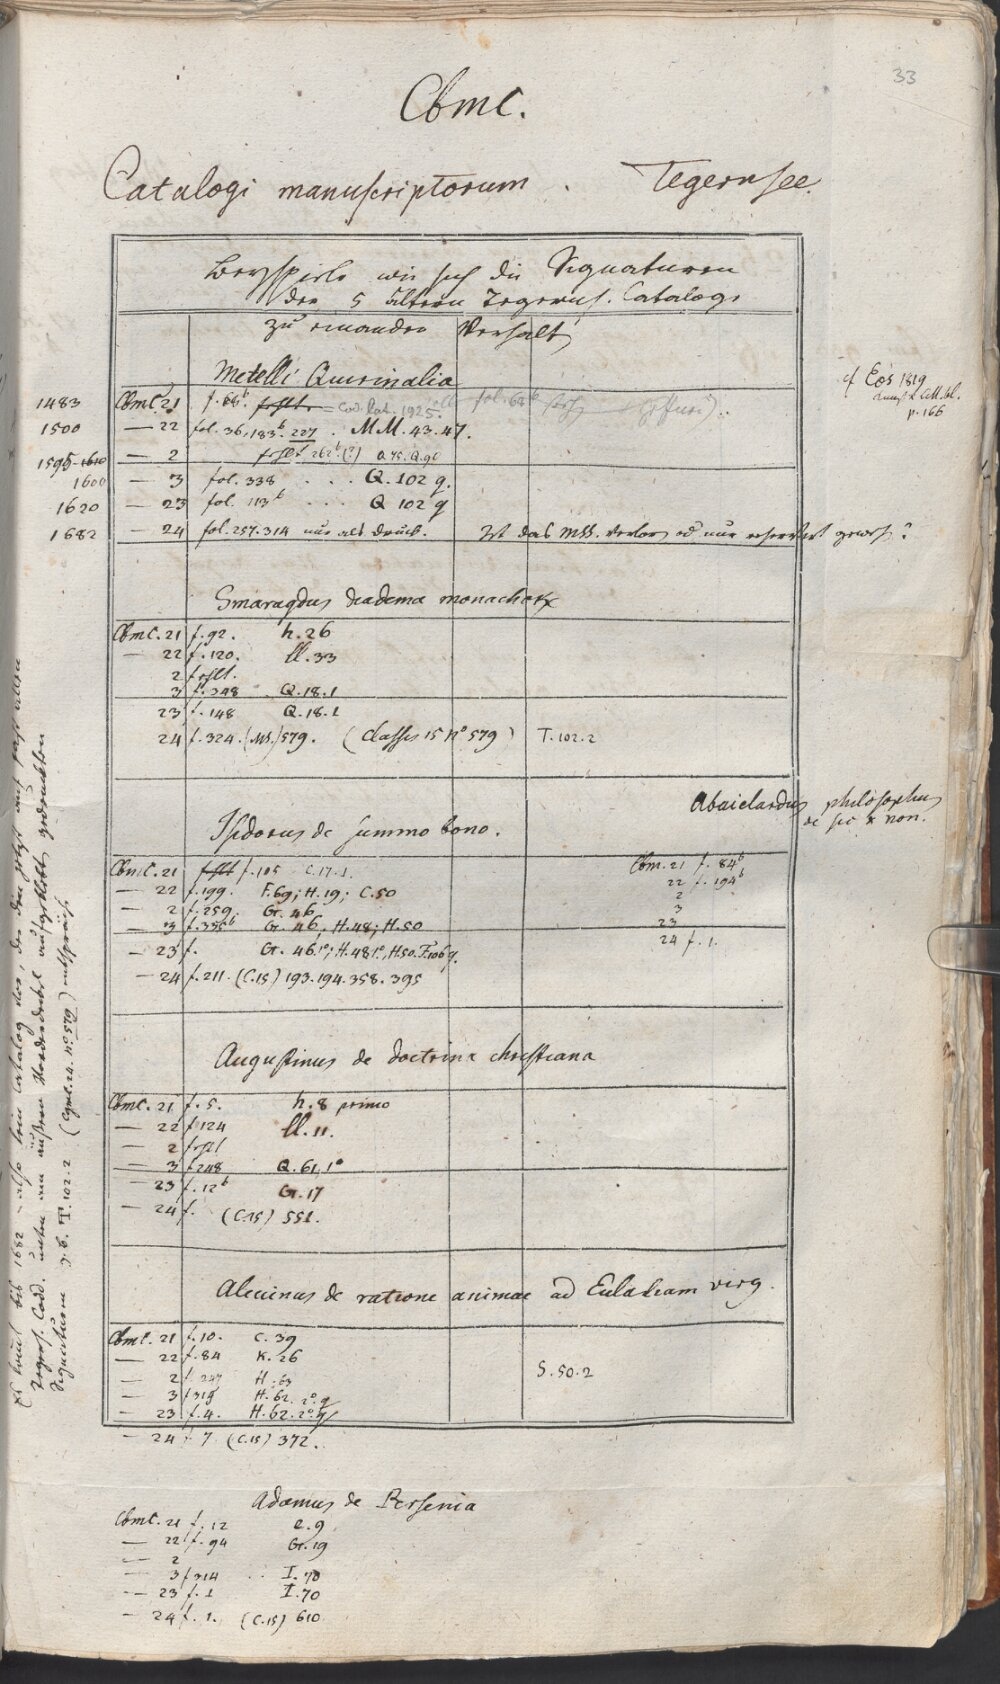 33
Cbm C.
Catalogi manuscriptorum . Tegernsee.
Beyspiele wie sich die Signaturen
der 5 ältern Tegerns. Catalogi
zu einander Verhalt
Metelli Quirinalia
1483 CbmC 21 f. 68b. fehlt. = Cod. Lat. 1925. fol. 68b
1500 — 22 fol. 36, 183b. 227 . MM. 43. 47.
1595-1610 — 2 fehlt 262b (?) Q. 45. Q. 90
1600 — 3 fol. 338 . . . Q. 102 q.
1620 — 23 fol. 113b . . . Q 102 q
1682 — 24 fol. 257. 314 nur als Druck. Ist das MSS. verlor od nur reservirt gewes?
cf Eos 1819
p. 166
Smaragdus diadema monachorum
CbmC. 21 f. 92. h. 26
— 22 f. 120. ll. 33
2 fehlt.
3 f. 348 Q. 18. 1
23 f. 148 Q. 18. 1
24 f. 324. (MS.) 579. (Classis 15 No 579) T. 102. 2
Isidorus de summo bono.
CbmC. 21 fehlt f. 105 C. 17. 1.
— 22 f. 199. F. 69; H. 19; C. 50
— 2 f. 259. Gr. 46
— 3 f. 335b Gr. 46, H. 48; H. 50
— 23 f. Gr. 46.1o; H. 48 1o., H. 50. F. 106 q.
— 24 f. 211. (C. 15) 193. 194. 358. 395
Abaielardus philosophus
de sic & non.
Cbm. 21 f. 84b
22 f. 194b
2
3
23
24 f. 1.
Augustinus de doctrina christiana
CbmC. 21 f. 5. h. 8 primo
— 22 f 124 ll. 11.
— 2 fehlt
— 3 f 248 Q. 61. 1o
— 23 f. 12b Gr. 17
— 24 f. (C. 15) 551.
Alcuinus de ratione animae ad Eulaliam virg.
CbmC. 21 f. 10. C. 39
— 22 f. 84 K. 26
— 2 f. 247 H. 63
— 3 f 319 H. 62. 2o. q
— 23 f. 4. H. 62. 2o. q
— 24 f 7 (C. 15) 372.
S. 50. 2
Adamus de Persenia
CbmC. 21 f. 12 e. 9
— 22 f. 94 Gr. 19
— 2
— 3 f 314 . . I. 70
— 23 f. 1 I. 70
— 24 f. 1. (C. 15) 610
Es kömt bis 1682 - also kein Catalog vor, der den jetzt auf fast allen
Tegerns. Codd. unten am äußern Vorderdeckel aufgeklebten gedruckten
Signaturen z. B. T. 102. 2 (Cgml. 24. No 579) entspräch.